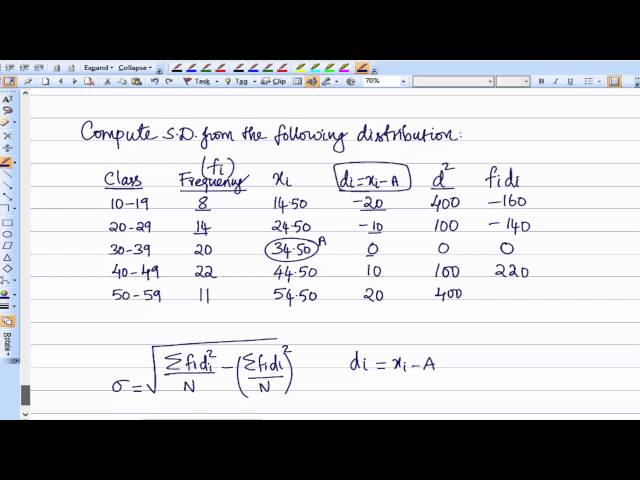 Expand Collapse
Task Tag Clip 70%
Compute S.D. from the following distribution:
(fi)
Class Frequency xi di=xi-A d² fidi
10-19 8 14.50 -20 400 -160
20-29 14 24.50 -10 100 -140
30-39 20 34.50 A 0 0 0
40-49 22 44.50 10 100 220
50-59 11 54.50 20 400
σ = √ Σfidi²/N - (Σfidi/N)² di = xi - A
Rotate